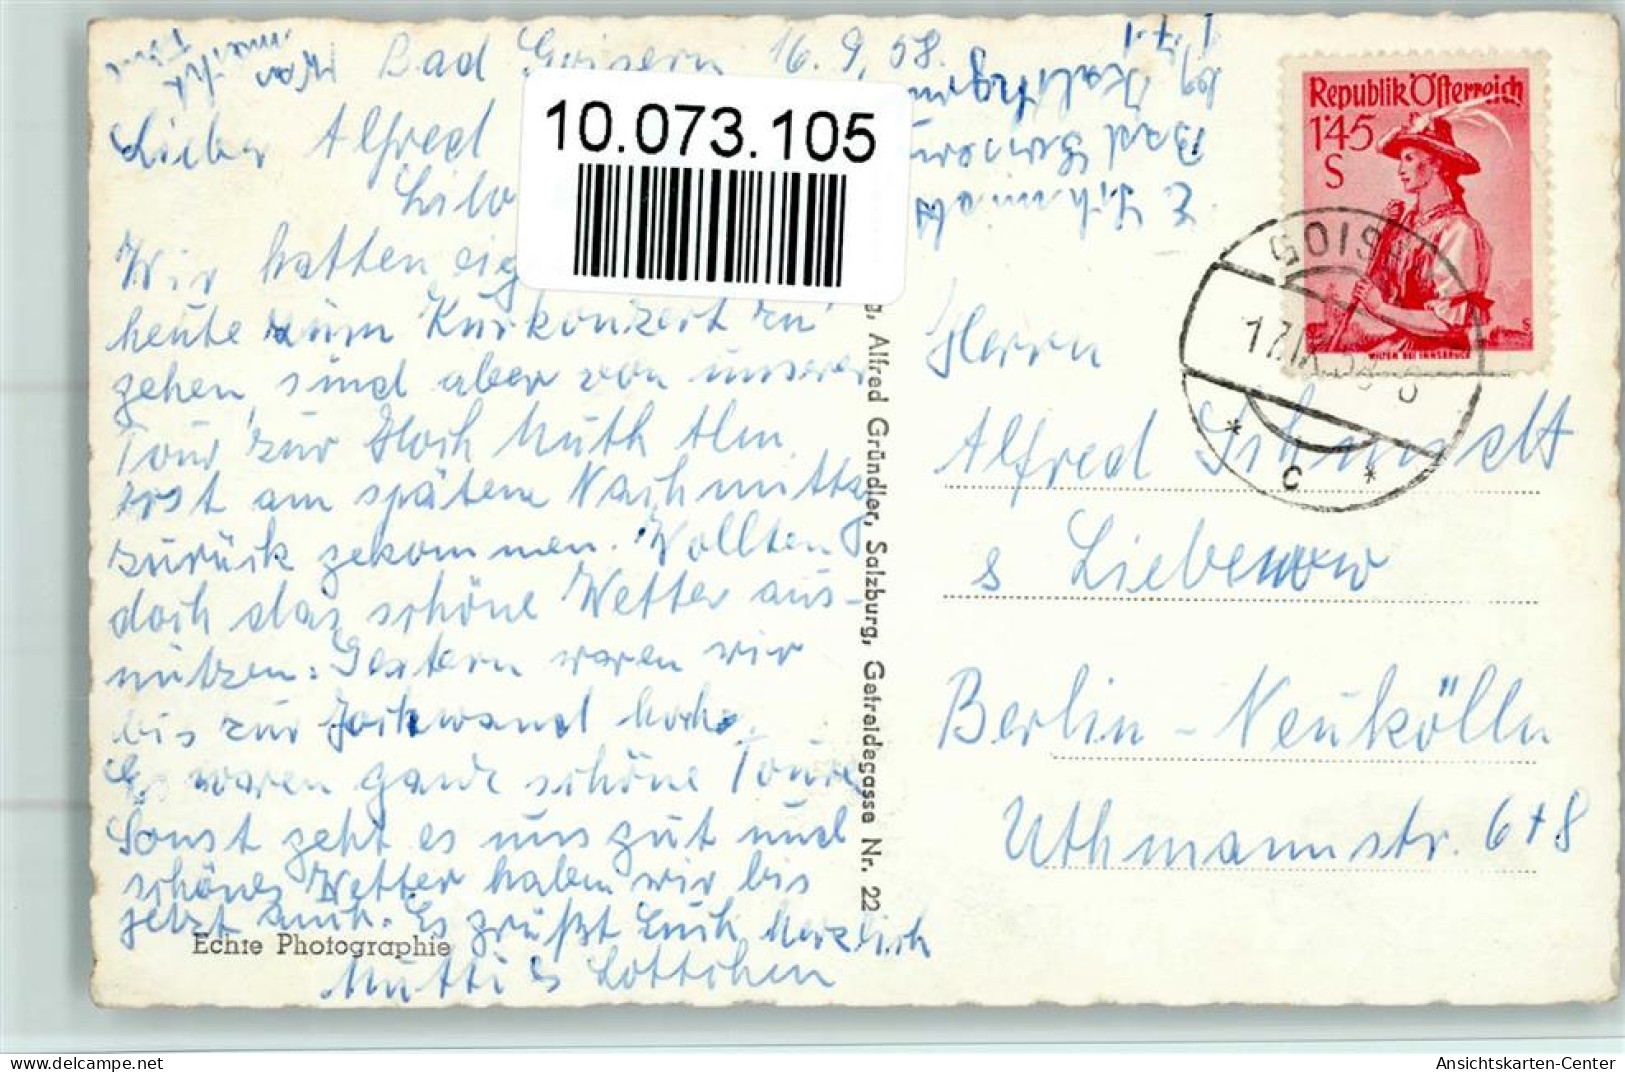 Bad Goisern 16.9.58.
Lieber Alfred
10.073.105
Wir hatten
heute zum Kurkonzert zu
gehen, sind aber von unserer
Tour zur Hoch Muth Alm
erst am späten Nachmittag
zurück gekommen. Wollten
doch das schöne Wetter aus-
nützen. Gestern waren wir
bis zur Jochwand hoch.
Es waren ganz schöne Touren
Sonst geht es uns gut und
schönes Wetter haben wir bis
jetzt auch. Es grüßt Euch herzlich
Mutti & Lottchen
Echte Photographie
Alfred Gründler, Salzburg, Getreidegasse Nr. 22
E. Schmidt
Bad Goisern
Republik Österreich
1'45
S
WILTEN BEI INNSBRUCK
GOISERN
c
Herrn
Alfred Schmidt
Liebenow
Berlin-Neukölln
Uthmannstr. 6+8
Ansichtskarten-Center